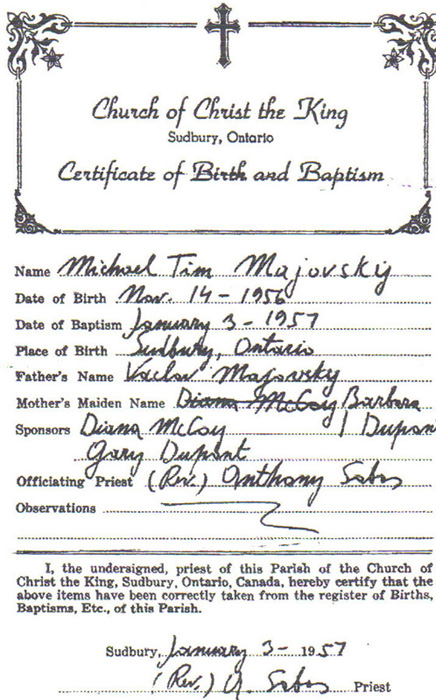 Church of Christ the King
Sudbury, Ontario
Certificate of Birth and Baptism
Name Michael Tim Majovsky
Date of Birth Nov. 14 - 1956
Date of Baptism January 3 - 1957
Place of Birth Sudbury, Ontario
Father's Name Vaclav Majovsky
Mother's Maiden Name Diana McCoy Barbara
Sponsors Diana McCoy | Dupon
Gary Dupont
Officiating Priest (Rev.) Anthony Sabos
Observations
I, the undersigned, priest of this Parish of the Church of
Christ the King, Sudbury, Ontario, Canada, hereby certify that the
above items have been correctly taken from the register of Births,
Baptisms, Etc., of this Parish.
Sudbury, January 3 - 1957
(Rev.) A. Sabos Priest